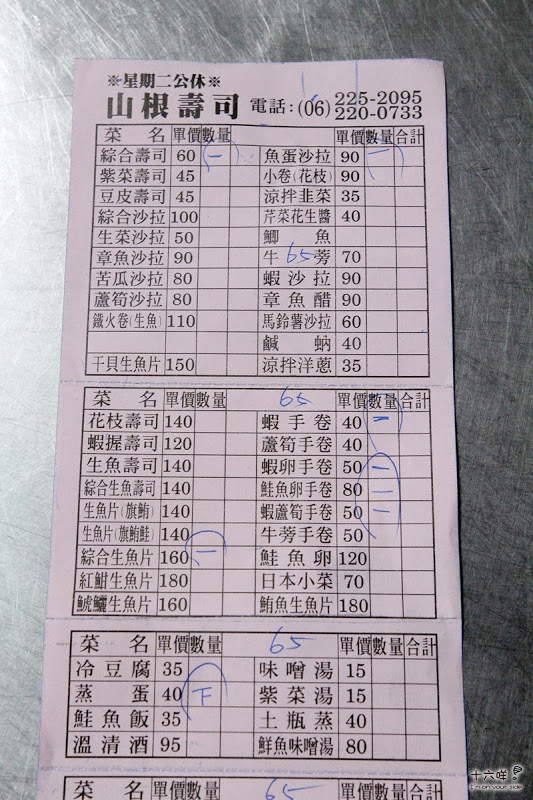 ※星期二公休※
山根壽司 電話:(06) 225-2095
220-0733
菜名 單價 數量 單價 數量 合計
綜合壽司 60 一 魚蛋沙拉 90 一
紫菜壽司 45 小卷(花枝) 90
豆皮壽司 45 涼拌韭菜 35
綜合沙拉 100 芹菜花生醬 40
生菜沙拉 50 鯽魚
章魚沙拉 90 牛蒡 70 65
苦瓜沙拉 80 蝦沙拉 90
蘆筍沙拉 80 章魚醋 90
鐵火卷(生魚) 110 馬鈴薯沙拉 60
鹹蚋 40
干貝生魚片 150 涼拌洋蔥 35
菜名 單價 數量 65 單價 數量 合計
花枝壽司 140 蝦手卷 40 一
蝦握壽司 120 蘆筍手卷 40
生魚壽司 140 蝦卵手卷 50 一
綜合生魚壽司 140 鮭魚卵手卷 80 一
生魚片(旗鮪) 140 蝦蘆筍手卷 50 一
生魚片(旗鮪鮭) 140 牛蒡手卷 50
綜合生魚片 160 一 鮭魚卵 120
紅魽生魚片 180 日本小菜 70
鯱鱺生魚片 160 鮪魚生魚片 180
菜名 單價 數量 65 單價 數量 合計
冷豆腐 35 味噌湯 15
蒸蛋 40 下 紫菜湯 15
鮭魚飯 35 土瓶蒸 40
溫清酒 95 鮮魚味噌湯 80
菜名 單價 數量 65 單價 數量 合計
十六咩
I'm on your side